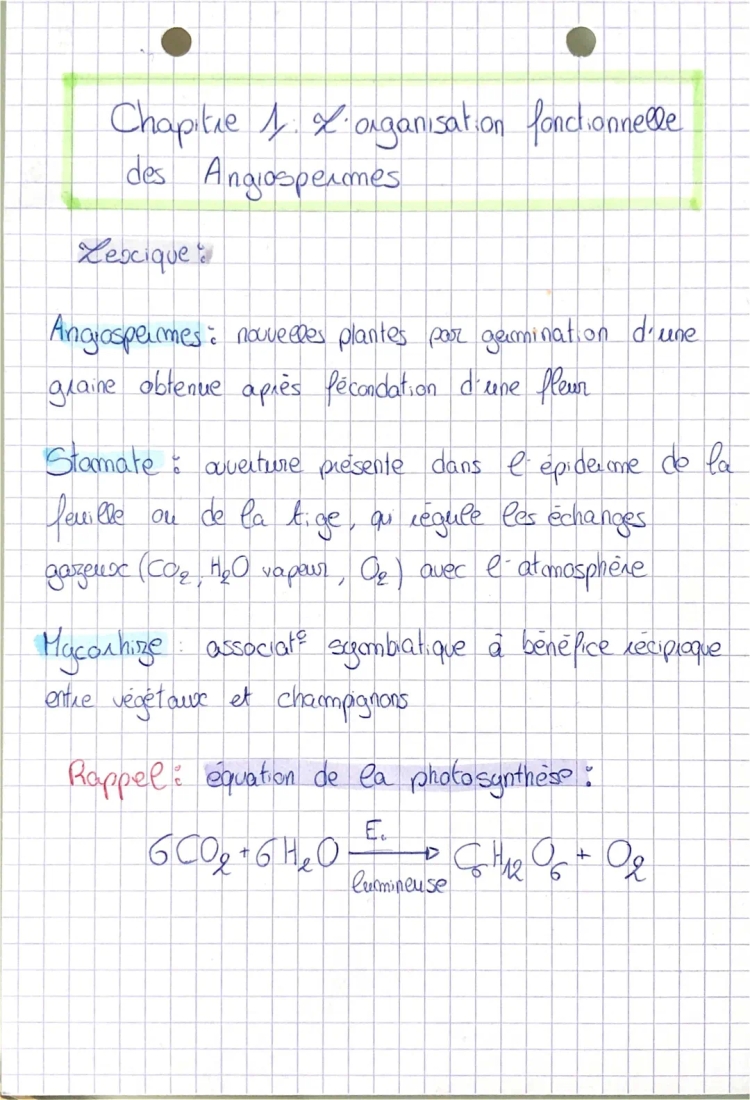 Chapitre 1: L'organisation fonctionnelle
des Angiospermes
Lexique:
Angiospermes: nouvelles plantes par germination d'une
graine obtenue après fécondation d'une fleur
Stomate: ouverture présente dans l'épiderme de la
feuille ou de la tige, qui régule les échanges
gazeux (CO₂, H₂O vapeur, O₂) avec l'atmosphère
Mycorhize: associat° symbiotique à bénéfice réciproque
entre végétaux et champignons
Rappel: équation de la photosynthèse:
6CO₂+6H₂O E. lumineuse → C₆H₁₂O₆ + O₂